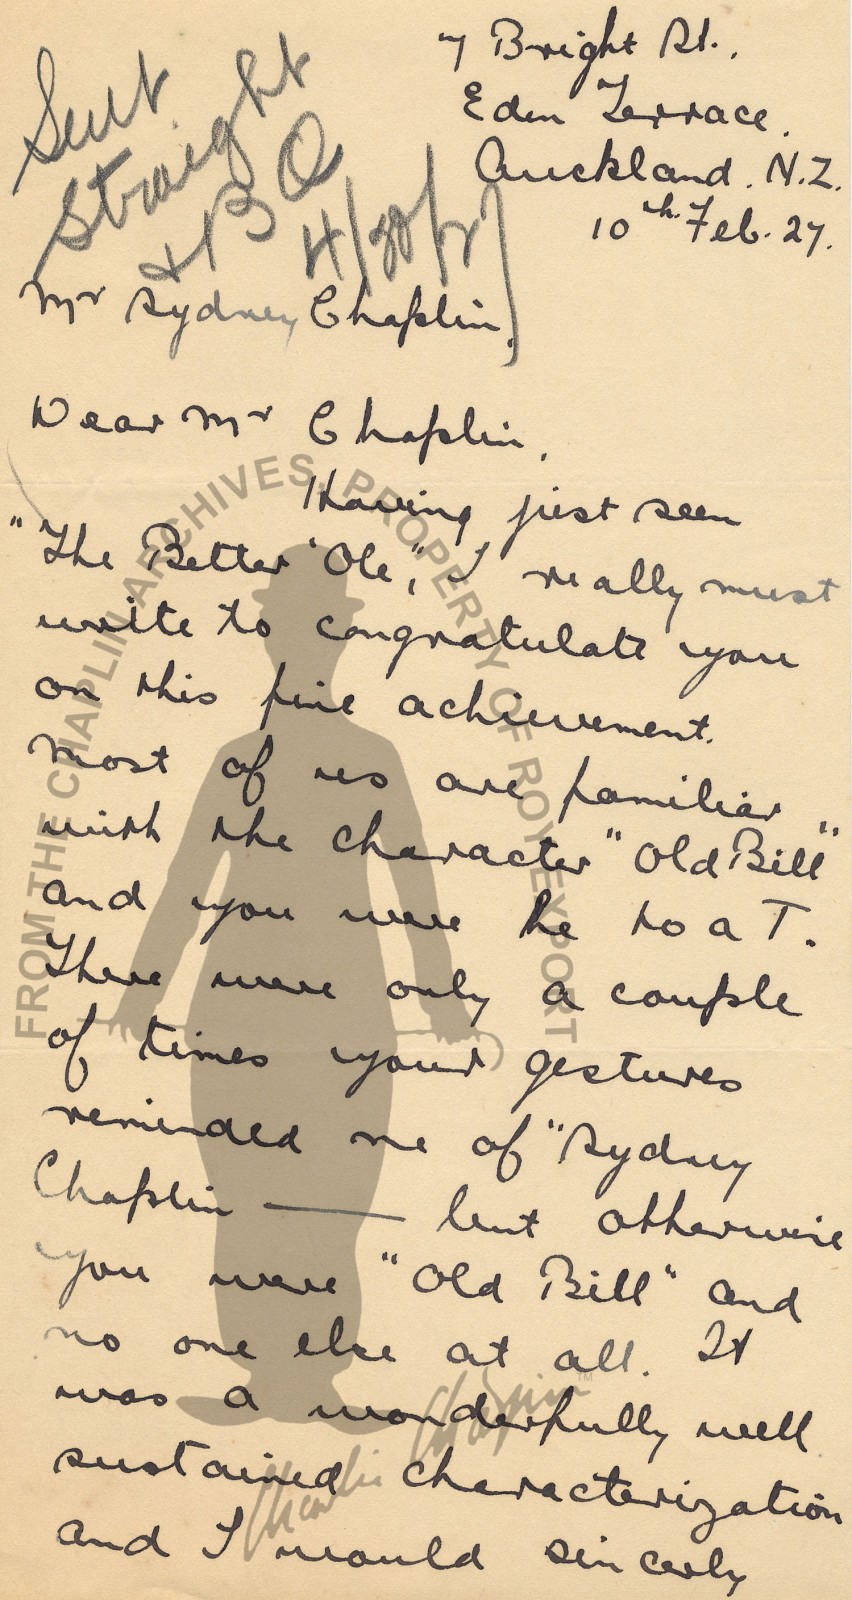 7 Bright St.,
Eden Terrace.
Auckland. N.Z.
10th. Feb. 27.
Sent
Straight
+ B O
4/30/27
Mr Sydney Chaplin,
Dear Mr Chaplin,
Having just seen
"The Better 'Ole", I really must
write to congratulate you
on this fine achievement.
Most of us are familiar
with the character "Old Bill"
and you were he to a T.
There were only a couple
of times your gestures
reminded me of "Sydney
Chaplin — but otherwise
you were "Old Bill" and
no one else at all. It
was a wonderfully well
sustained characterization
and I would sincerly
FROM THE CHAPLIN ARCHIVES, PROPERTY OF ROY EXPORT
Charlie Chaplin™